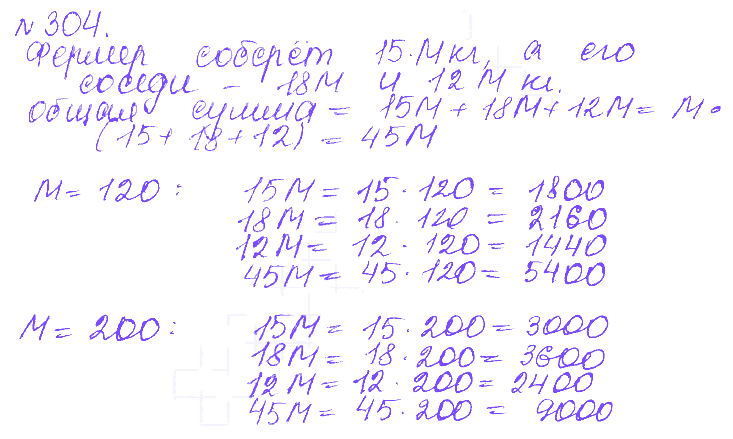 № 304.
Фермер соберёт 15·М кг, а его
соседи – 18М и 12М кг.
общая сумма = 15М + 18М + 12М = М·
(15 + 18 + 12) = 45М
М = 120 : 15М = 15 · 120 = 1800
18М = 18 · 120 = 2160
12М = 12 · 120 = 1440
45М = 45 · 120 = 5400
М = 200 : 15М = 15 · 200 = 3000
18М = 18 · 200 = 3600
12М = 12 · 200 = 2400
45М = 45 · 200 = 9000